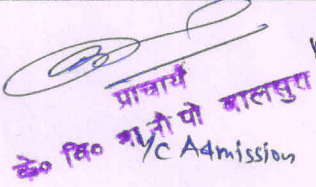 प्राचार्य
के० वि० भा नौ पो वालसुरा
I/C Admission